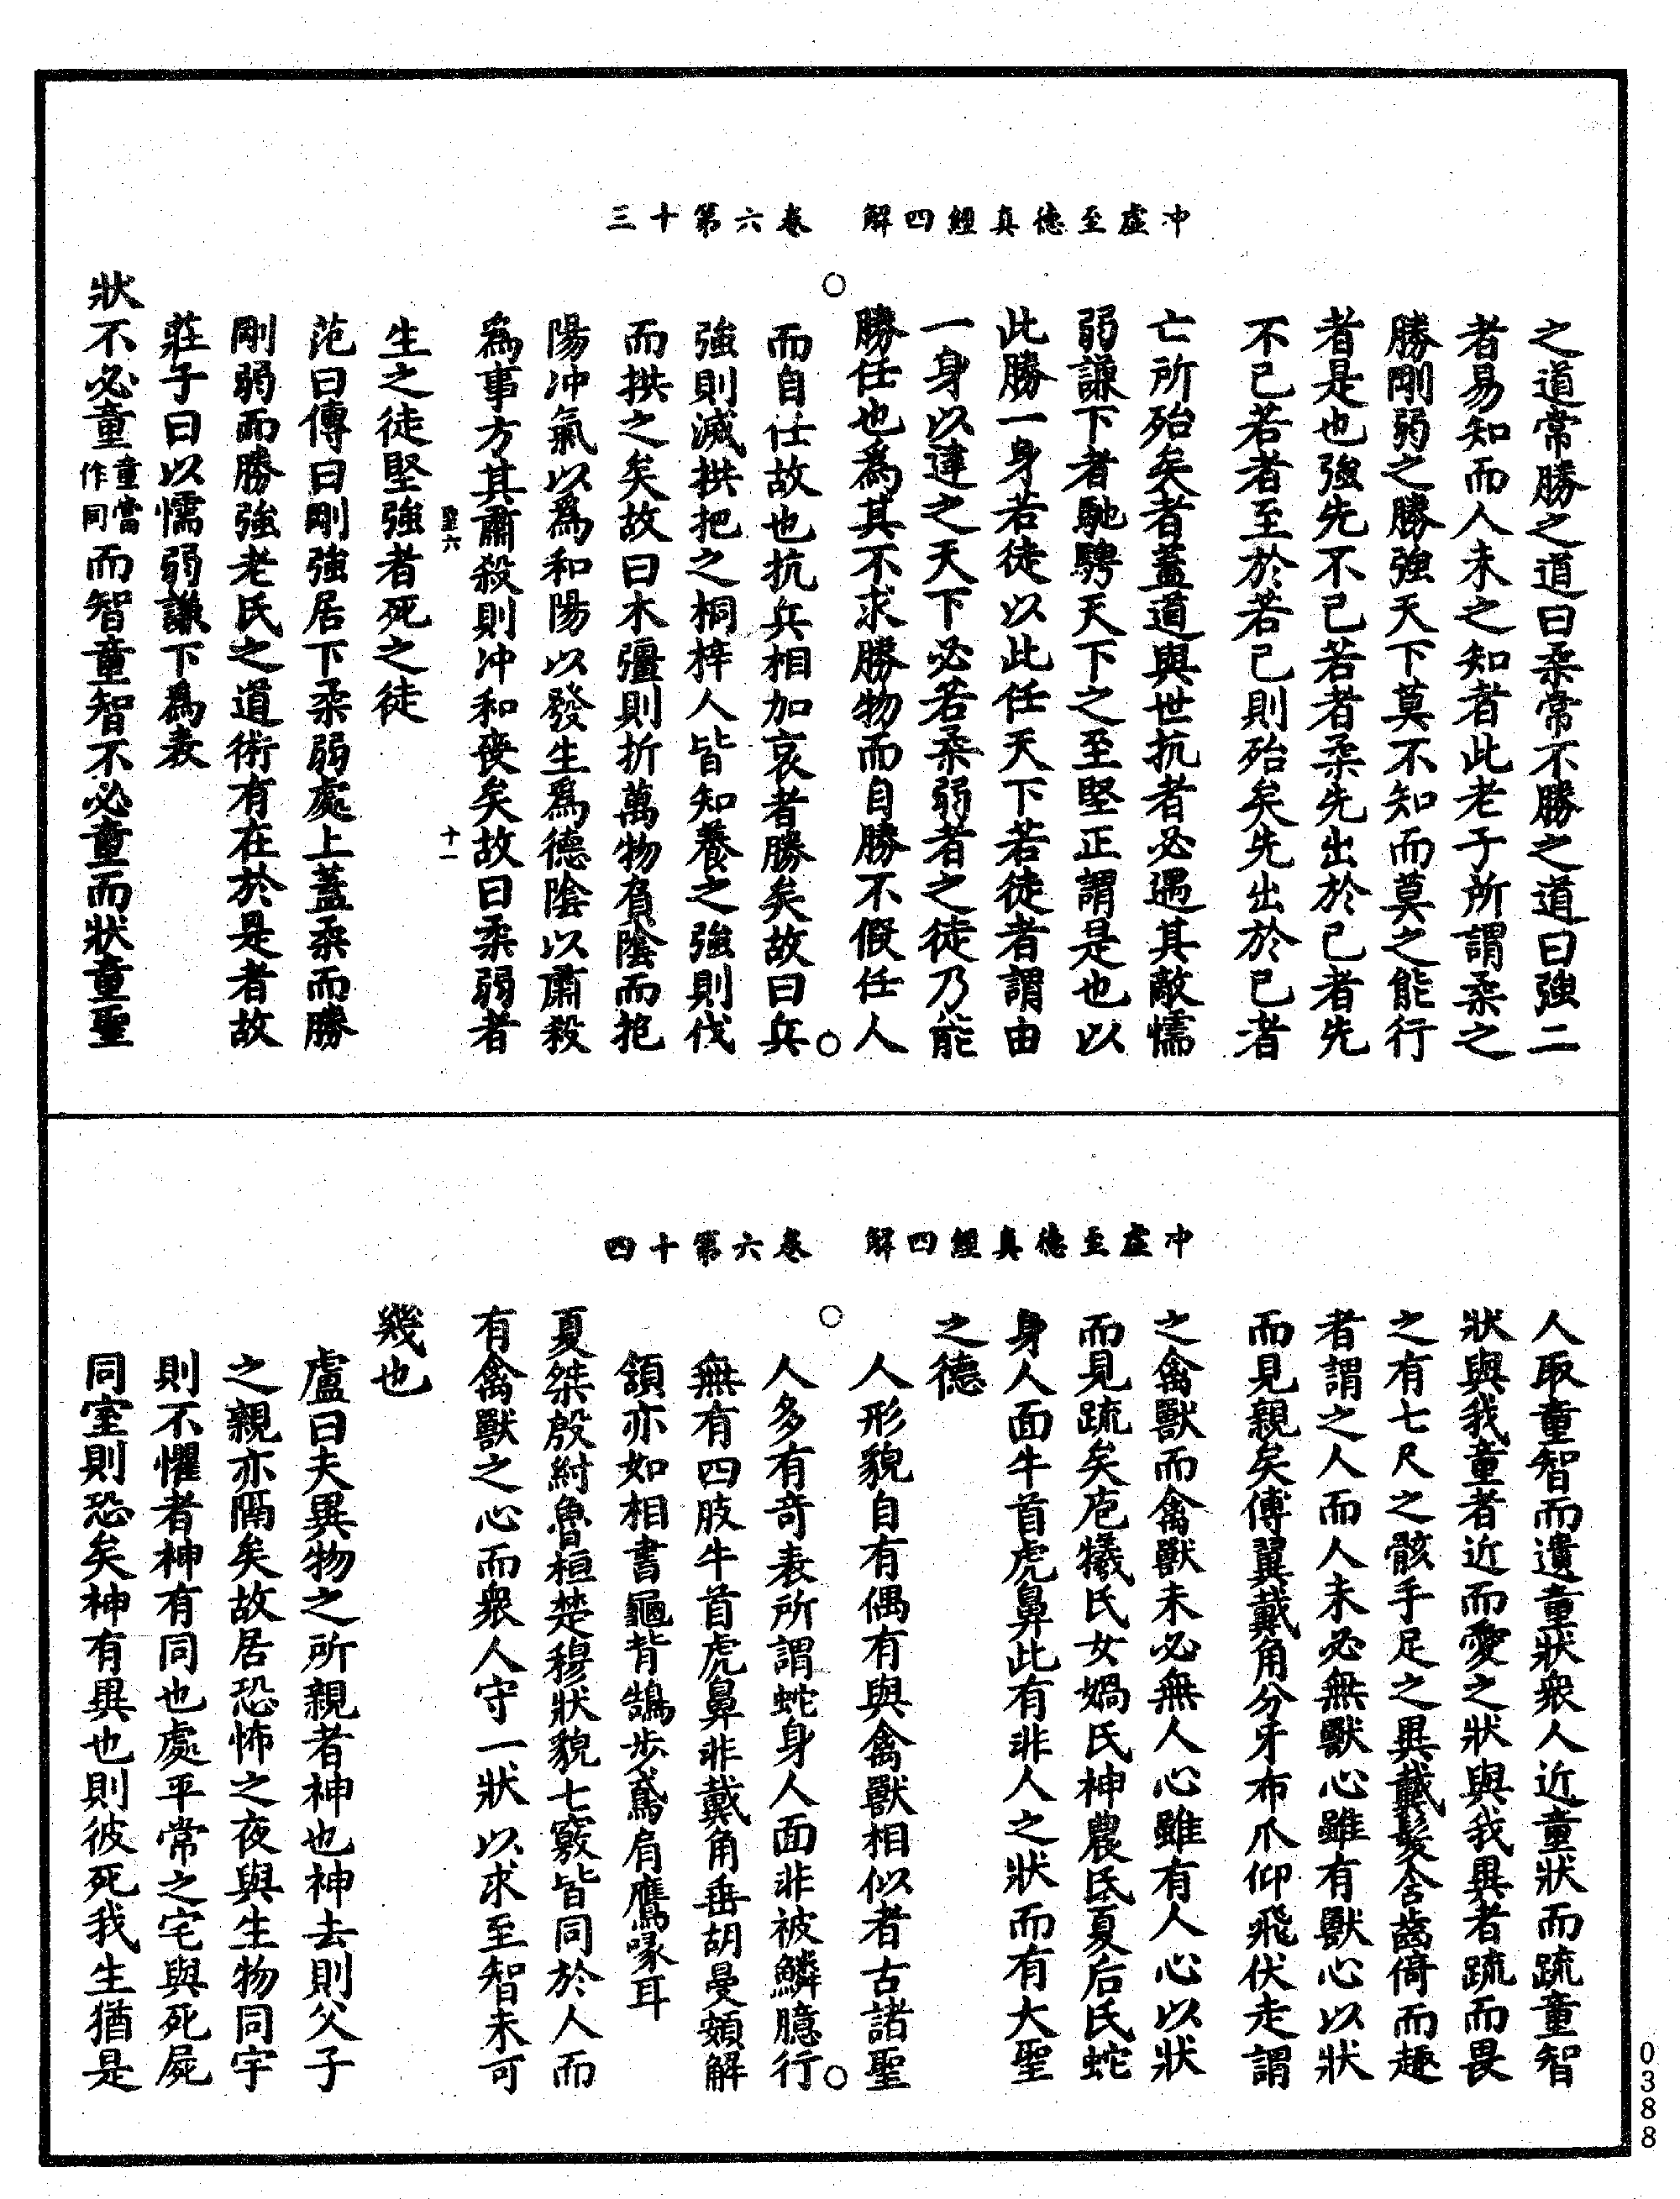 冲虛至德真經四解　卷六第十三
之道常勝之道曰柔常不勝之道曰強二
者易知而人未之知者此老子所謂柔之
勝剛弱之勝強天下莫不知而莫之能行
者是也強先不己若者柔先出於己者先
不己若者至於若己則殆矣先出於己者
亡所殆矣者蓋道與世抗者必遇其敵懦
弱謙下者馳騁天下之至堅正謂是也以
此勝一身若徒以此任天下若徒者謂由
一身以達之天下必若柔弱者之徒乃能
勝任也爲其不求勝物而自勝不假任人
而自任故也抗兵相加哀者勝矣故曰兵
強則滅拱把之桐梓人皆知養之強則伐
而拱之矣故曰木彊則折萬物負陰而抱
陽冲氣以爲和陽以發生爲德陰以肅殺
爲事方其肅殺則冲和喪矣故曰柔弱者
聖六　十一
生之徒堅強者死之徒
范曰傳曰剛強居下柔弱處上蓋柔而勝
剛弱而勝強老氏之道術有在於是者故
莊子曰以懦弱謙下爲表
狀不必童童當作同而智童智不必童而狀童聖
冲虛至德真經四解　卷六第十四
人取童智而遺童狀衆人近童狀而疏童智
狀與我童者近而愛之狀與我異者疏而畏
之有七尺之骸手足之異戴髮含齒倚而趣
者謂之人而人未必無獸心雖有獸心以狀
而見親矣傅翼戴角分牙布爪仰飛伏走謂
之禽獸而禽獸未必無人心雖有人心以狀
而見疏矣庖犧氏女媧氏神農氏夏后氏蛇
身人面牛首虎鼻此有非人之狀而有大聖
之德
人形貌自有偶有與禽獸相似者古諸聖
人多有奇表所謂蛇身人面非被鱗臆行
無有四肢牛首虎鼻非戴角垂胡曼頞解
頷亦如相書龜背鵠步鳶肩鷹喙耳
夏桀殷紂魯桓楚穆狀貌七竅皆同於人而
有禽獸之心而衆人守一狀以求至智未可
幾也
盧曰夫異物之所親者神也神去則父子
之親亦隔矣故居恐怖之夜與生物同宇
則不懼者神有同也處平常之宅與死屍
同室則恐矣神有異也則彼死我生猶是
0388